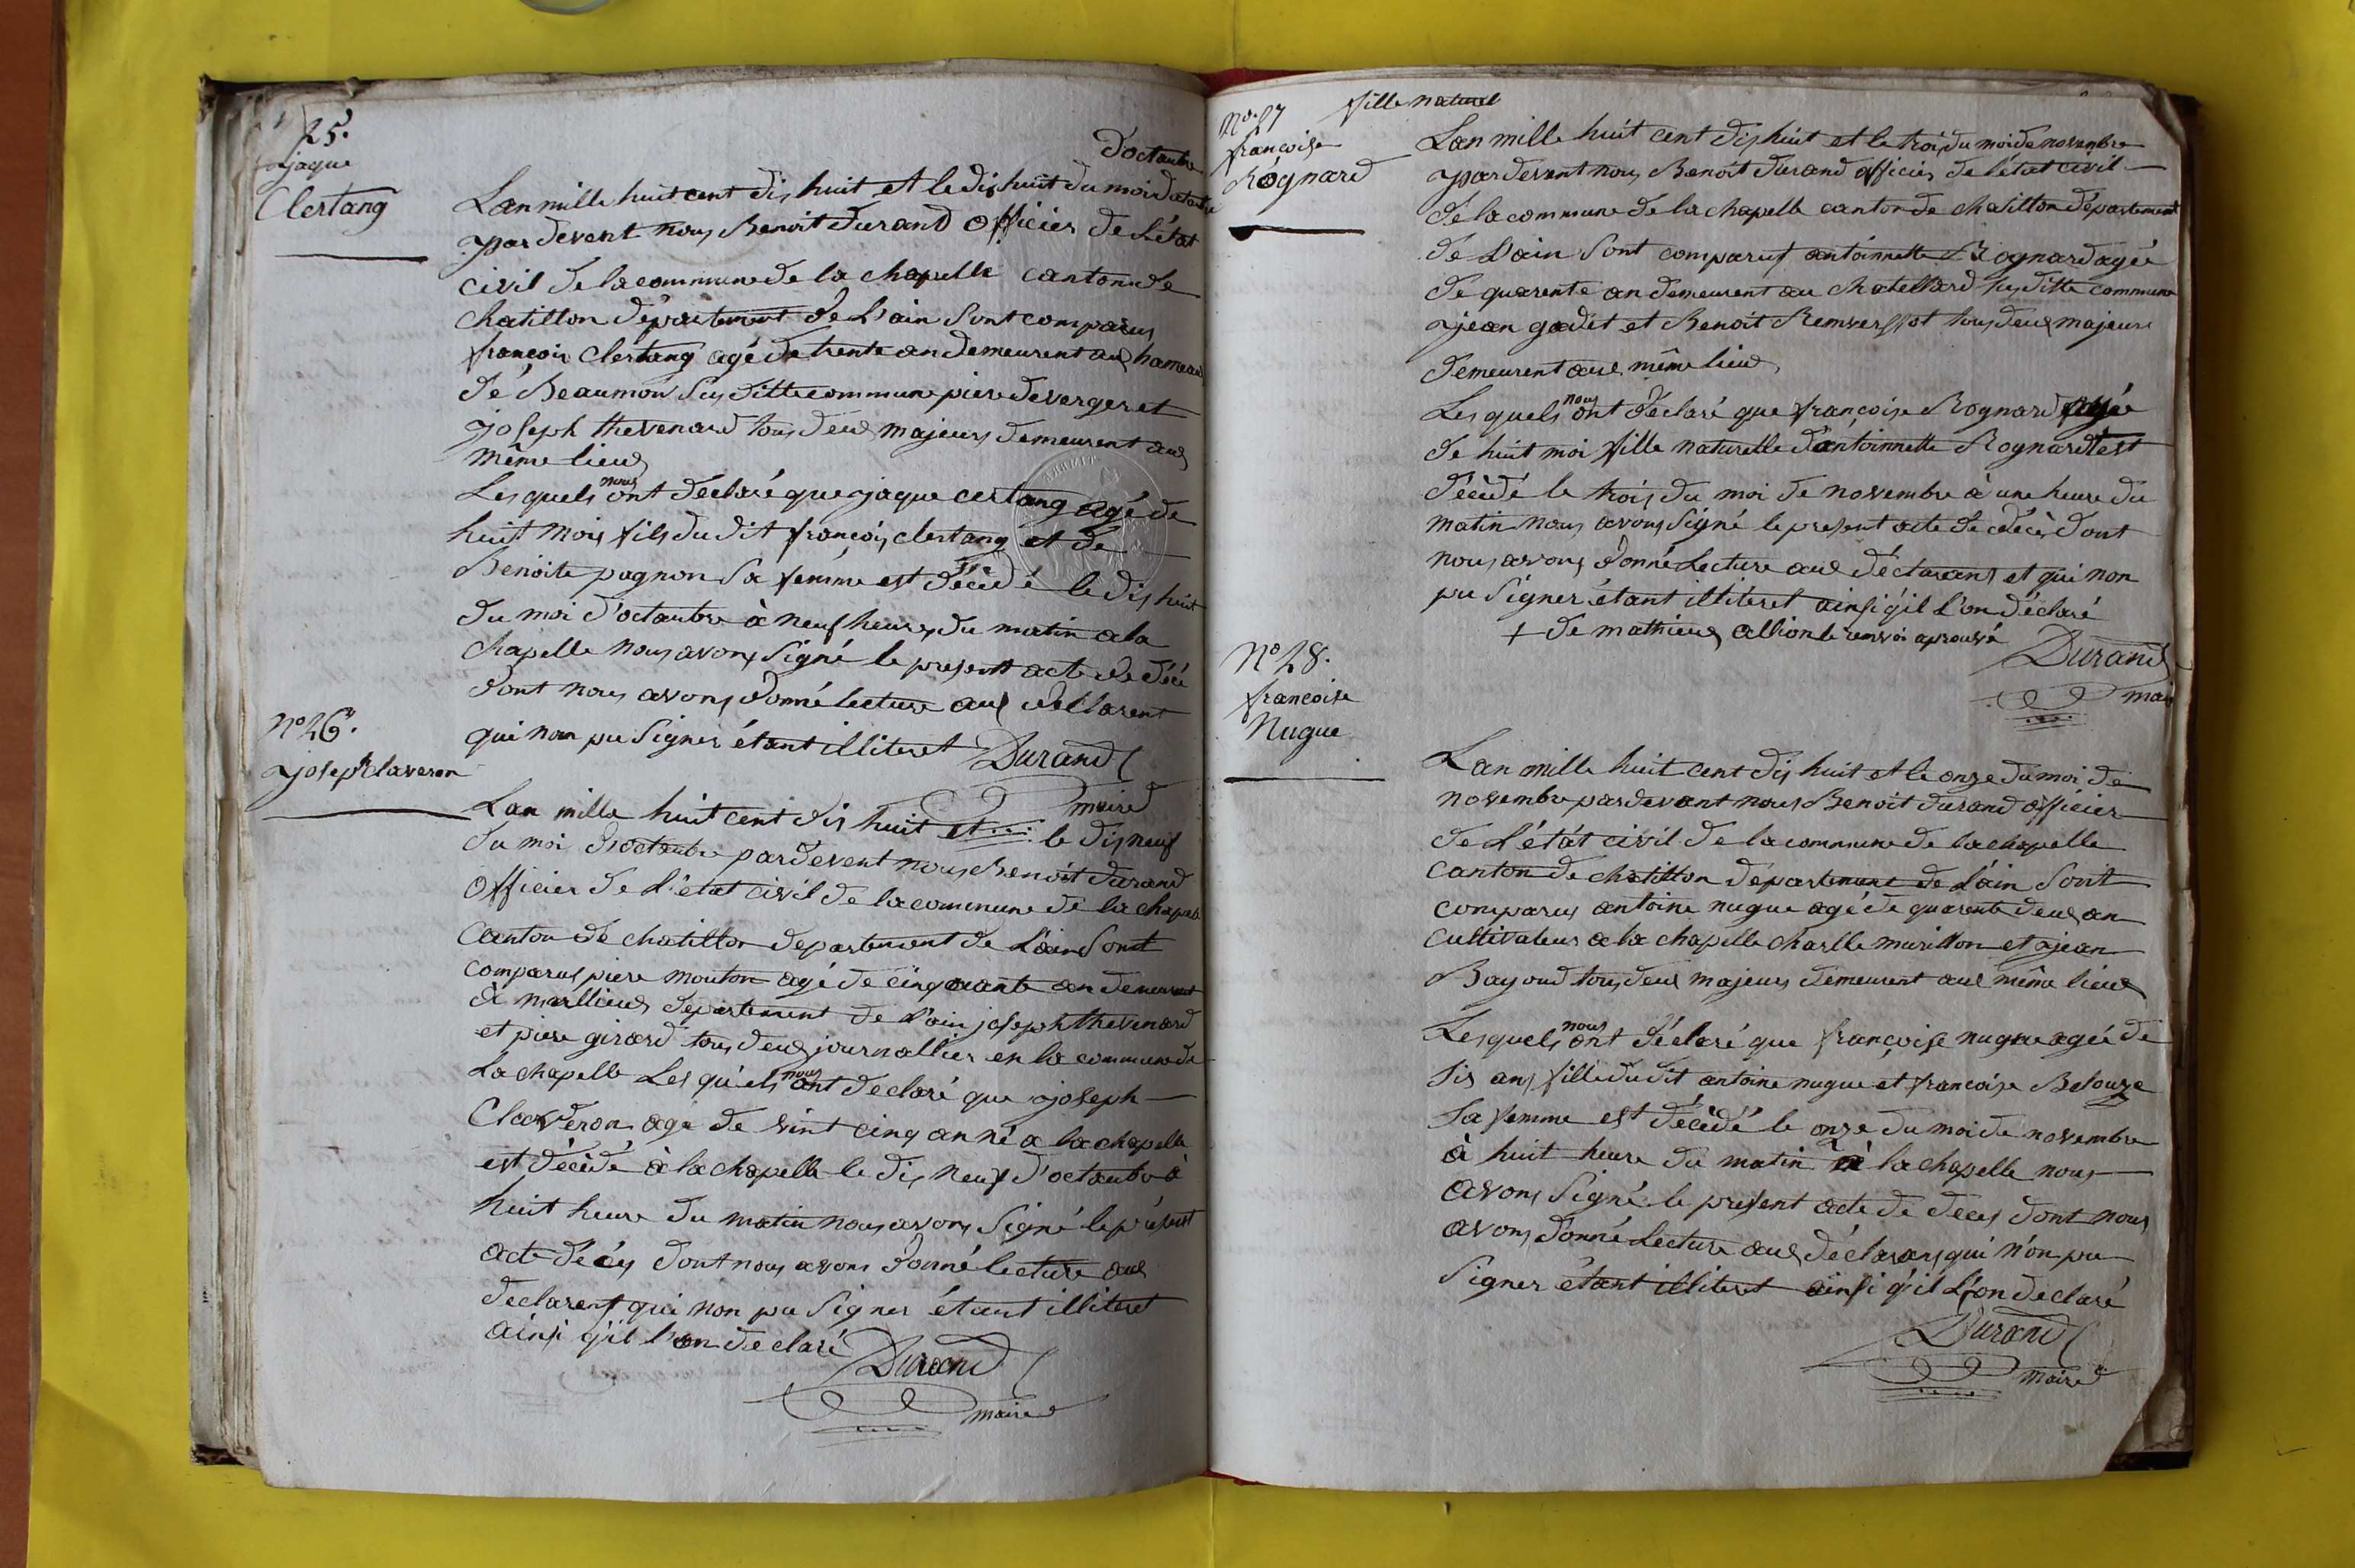 25.
jaque
Clertang
d'octaubre
Lan mille huit cent dis huit et le dis huit du moi d'octaubre
par devent nous Benoit durand officier de l'état
civil de la commune de la chapelle canton de
chatillon département de L'ain sont comparus
françois Clertang agé de trente an demeurent aux hameaux
de Beaumon sus ditte commune piere devarger et
joseph thevenard tous deux majeurs demeurent aux
même lieux
Les quels nous ont déclaré que jaque certang agé de
huit mois fils du dit françois clertang et de
Benoite pagnon sa femme est décèdé le dis huit
du moi d'octaubre à neuf heures du matin a la
chapelle nous avons signé le present acte de décè
dont nous avons donné lecture aux déclarent
qui non pu signer étant illiteret Durand
maire
N° 26.
joseph claveron
Lan mille huit cent dis huit et le dis neuf
du moi d'octaubre par devent nous Benoit durand
officier de L'état civil de la commune de la chapelle
canton de chatillon departement de L'ain sont
comparus piere mouton agé de cinquante an demeurent
à marllieux departement de L'ain joseph thevenard
et piere girard tous deux journallier en la commune de
La chapelle Les quels nous ont declaré que joseph
Claveron age de vint cinq an né a la chapelle
est décèdé à la chapelle le dis neuf d'octaubre à
huit heure du matin nous avons signé le présent
acte décés dont nous avons donné lecture aux
declarent qui non pu signer étant illiteret
ainsi q'il l'on declaré Durand
maire
N° 27 fille naturel
françoise
Rognard
Lan mille huit cent dis huit et le trois du moi de novembre
par devent nous Benoit durand officier de l'état civil
de la commune de la chapelle canton de chatillon département
de L'ain sont comparus antoinnette Rognard agée
de quarente an demeurent au chatellard sus ditte commune
jean gadet et Benoit tous deux majeurs
demeurent aux même lieux
Les quels nous ont déclaré que françoise Rognard agée
de huit moi fille naturelle d'antoinnette Rognard + est
décèdé le trois du moi de novembre à une heure du
matin nous avons signé le present acte de décès dont
nous avons donné Lecture aux déclarans et qui non
pu signer étant illiteret ainsi q'il l'on déclaré
+ de mathieux allion le renvoi aprouvé
Durand
maire
N° 28.
françoise
Nugue
Lan mille huit cent dis huit et le onze du moi de
novembre par devant nous Benoit durand officier
de L'état civil de la commune de la chapelle
canton de chatillon departement de L'ain sont
comparus antoine nugue agé de quarente deux an
cultivateur a la chapelle charlle murillon et jean
Bayoud tous deux majeurs demeurent aux même lieux
Les quels nous ont déclaré que françoise nugue agée de
sis ans fille du dit antoine nugue et françoise Belouze
sa femme est décèdé le onze du moi de novembre
à huit heure du matin à la chapelle nous
avons signé le present acte de deces dont nous
avons donné Lecture aux déclarans qui n'on pu
signer étant illiteret ainsi q'il L'on declaré
Durand
maire